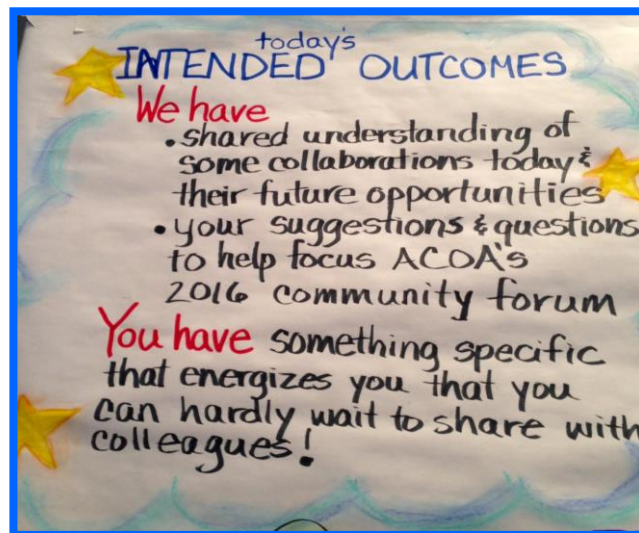 today's
INTENDED OUTCOMES
We have
• shared understanding of
some collaborations today &
their future opportunities
• your suggestions & questions
to help focus ACOA's
2016 community forum
You have something specific
that energizes you that you
can hardly wait to share with
colleagues!